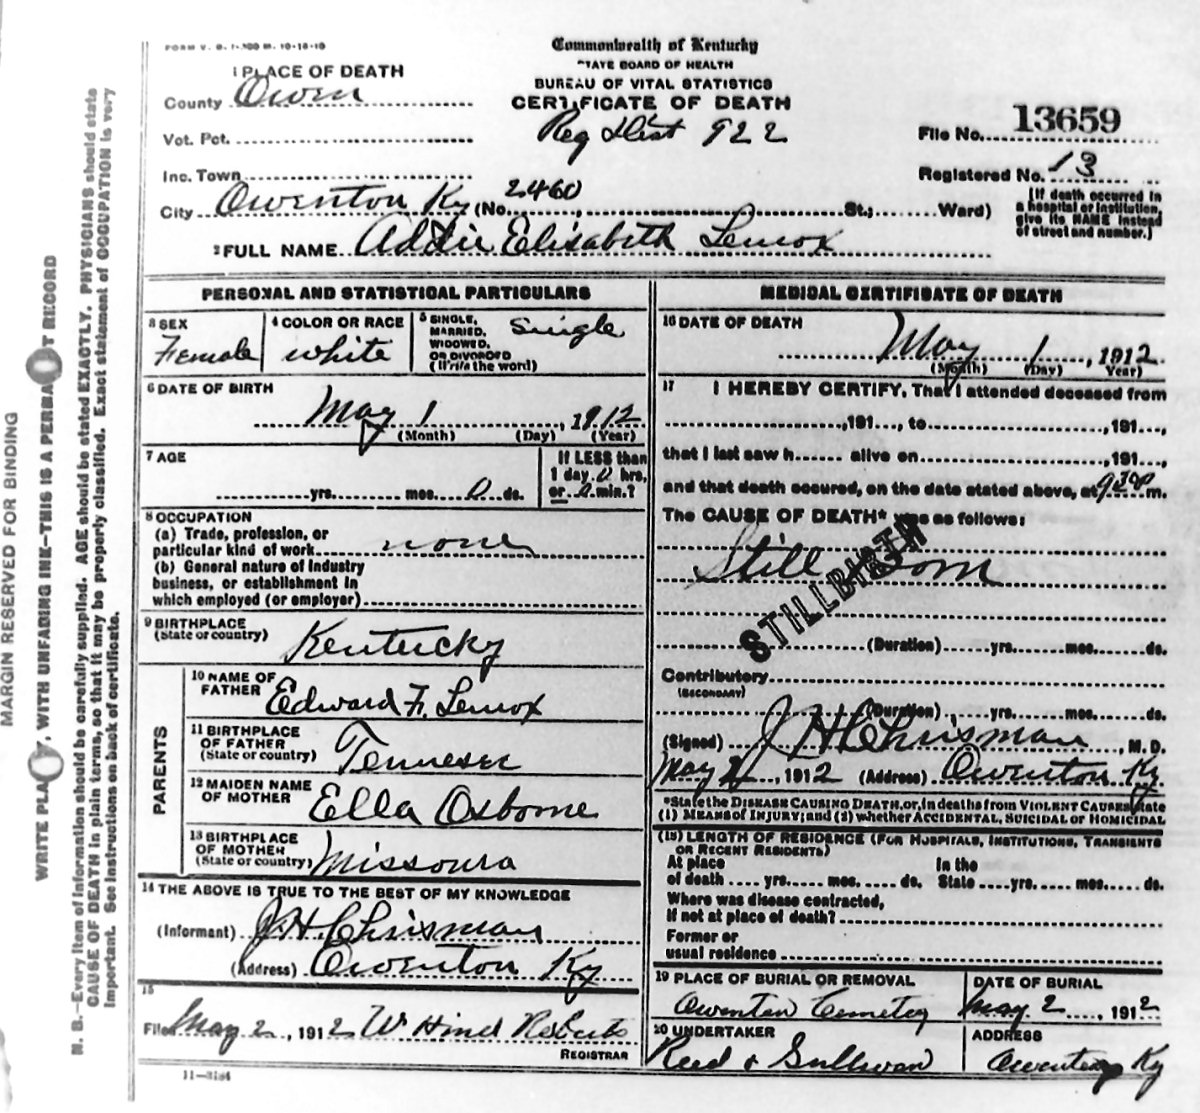 FORM V. S. 1-300 M. 10-18-10
Commonwealth of Kentucky
STATE BOARD OF HEALTH
BUREAU OF VITAL STATISTICS
CERTIFICATE OF DEATH
Reg Dist 922
1 PLACE OF DEATH
County Owen
Vot. Pct.
Inc. Town
City Owenton Ky (No. 2460, St.; Ward)
File No. 13659
Registered No. 13
(If death occurred in
a hospital or institution,
give its NAME instead
of street and number.)
2 FULL NAME Addie Elisabeth Lenox
PERSONAL AND STATISTICAL PARTICULARS
3 SEX
Female
4 COLOR OR RACE
white
5 SINGLE,
MARRIED,
WIDOWED,
OR DIVORCED
(Write the word)
Single
6 DATE OF BIRTH
May 1, 1912
(Month) (Day) (Year)
7 AGE
yrs. mos. 0 ds.
If LESS than
1 day, 0 hrs.
or 0 min.?
8 OCCUPATION
(a) Trade, profession, or
particular kind of work none
(b) General nature of Industry
business, or establishment in
which employed (or employer)
9 BIRTHPLACE
(State or country) Kentucky
PARENTS
10 NAME OF
FATHER Edward F. Lenox
11 BIRTHPLACE
OF FATHER
(State or country) Tennesee
12 MAIDEN NAME
OF MOTHER Ella Osborne
13 BIRTHPLACE
OF MOTHER
(State or country) Missoura
14 THE ABOVE IS TRUE TO THE BEST OF MY KNOWLEDGE
(Informant) J H Chrisman
(Address) Owenton Ky
15
Filed May 2, 1912 W Hines Roberts
REGISTRAR
11-3184
MEDICAL CERTIFICATE OF DEATH
16 DATE OF DEATH
May 1, 1912
(Month) (Day) Year)
17 I HEREBY CERTIFY, That I attended deceased from
, 191 , to , 191 ,
that I last saw h alive on , 191 ,
and that death occured, on the date stated above, at 9 30 P m.
The CAUSE OF DEATH* was as follows:
Still Born
STILLBIRTH
(Duration) yrs. mos. ds.
Contributory
(SECONDARY)
(Duration) yrs. mos. ds.
(Signed) J H Chrisman, M. D.
May 2, 1912 (Address) Owenton Ky
*State the DISEASE CAUSING DEATH, or, in deaths from VIOLENT CAUSES, state
(1) MEANS OF INJURY; and (2) whether ACCIDENTAL, SUICIDAL OR HOMICIDAL
(18) LENGTH OF RESIDENCE (FOR HOSPITALS, INSTITUTIONS, TRANSIENTS
OR RECENT RESIDENTS)
At place In the
of death yrs. mos. ds. State yrs. mos. ds.
Where was disease contracted,
If not at place of death?
Former or
usual residence
19 PLACE OF BURIAL OR REMOVAL
Owenton Cemetery
DATE OF BURIAL
May 2, 1912
20 UNDERTAKER
Reed & Sullivan
ADDRESS
Owenton Ky
MARGIN RESERVED FOR BINDING
WRITE PLA Y, WITH UNFADING INK—THIS IS A PERMA T RECORD
N. B.—Every item of Information should be carefully supplied. AGE should be stated EXACTLY. PHYSICIANS should state
CAUSE OF DEATH in plain terms, so that it may be properly classified. Exact statement of OCCUPATION is very
Important. See instructions on back of certificate.